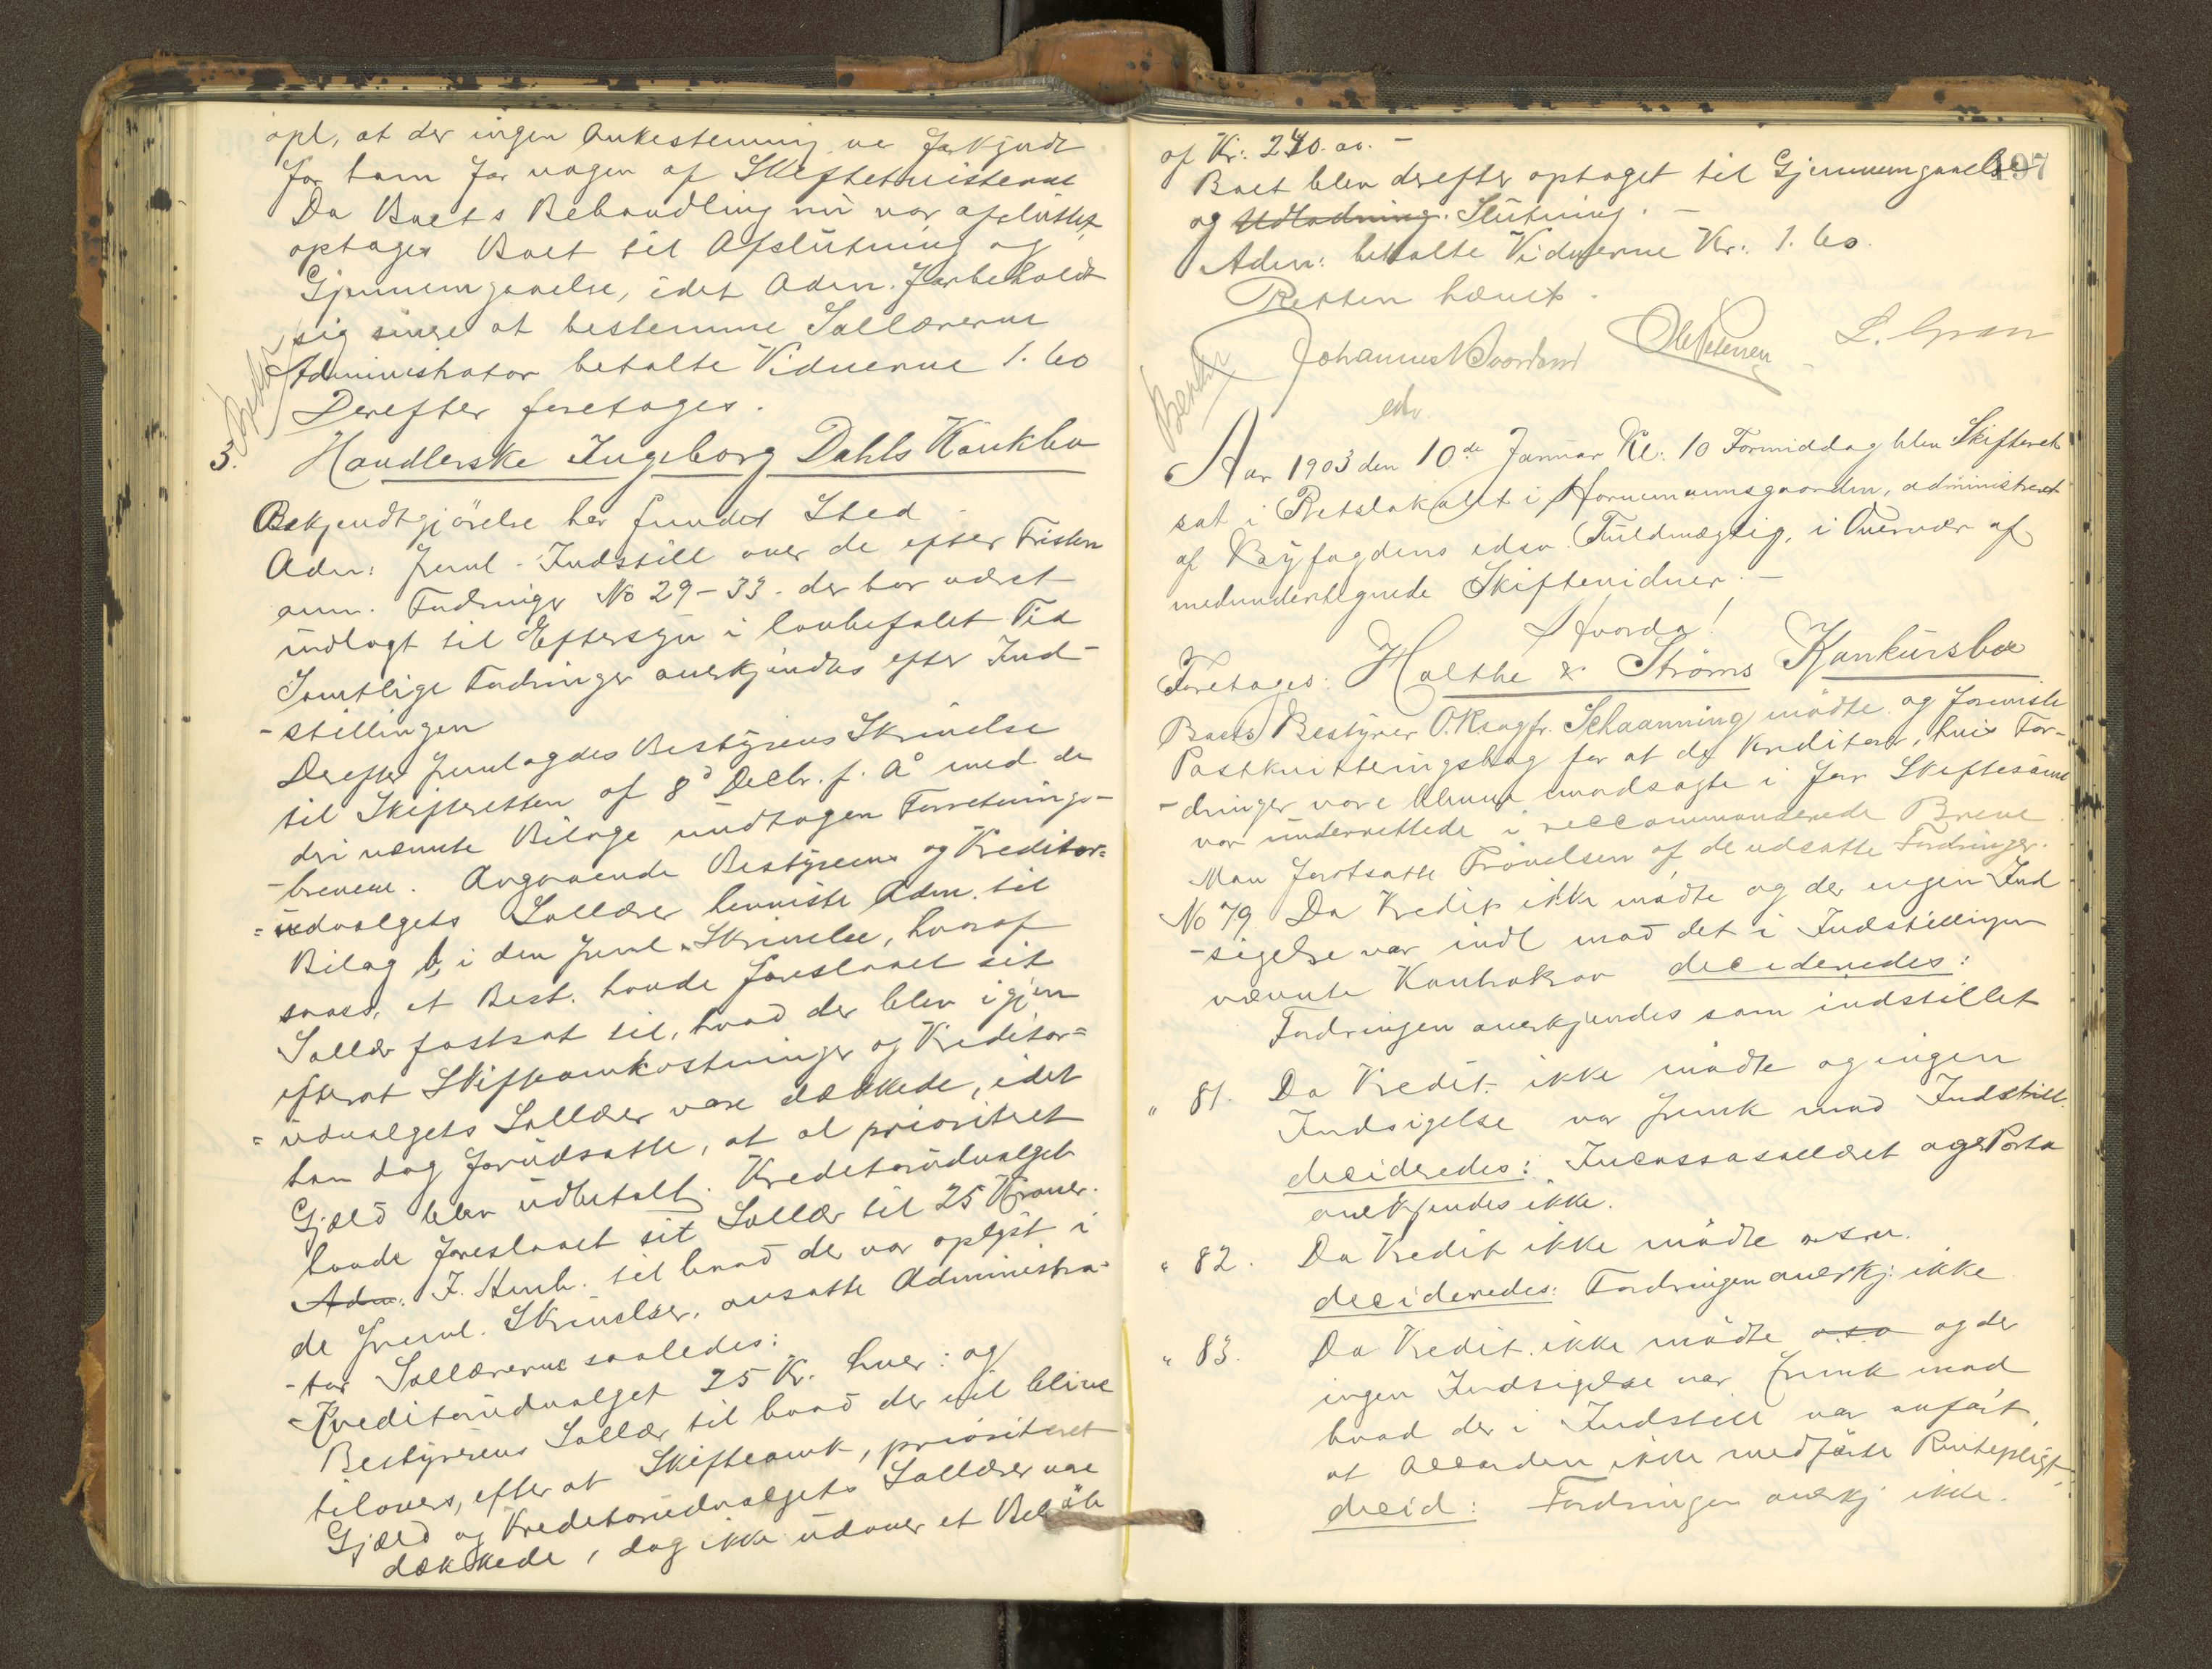 opl, at der ingen Ankestemning var forkyndt
for ham for nogen af Skiftetvisterne
Da Boets Behandling nu var afsluttet
optages Boet til Afslutning og
Gjennemgaaelse, idet Adm. forbeholdt
sig senere at bestemme Sallærerne
Administrator betalte Vidnerne 1.60
Derefter foretages.
3. Handlerske Ingeborg Dahls Konkbo
Bekjendtgjörelse har fundet Sted
Adm: freml. Indstill over de efter Fristen
anm. Fodringer No 29-33. der har været
udlagt til Eftersyn i lovbefalet Tid
Samtlige Fodringer anerkjendtes efter Ind-
-stillingen
Derefter fremlagdes Bestyrerens Skrivelse
til Skifteretten af 8d Decbr. f. A. med de
deri nævnte Bilage undtagen Forretnings-
-brevene. Angaaende Bestyrerens og Kreditor=
=udvalgets Sallærer henviste Adm. til
Bilag b, i den freml. Skrivelse, hvoraf
saaes, at Best. havde foreslaaet sit
Sallær fastsat til, hvad der blev igjen
efterat Skifteomkostninger og Kreditor=
=udvalgets Sallærer vare dækkede, idet
han dog forudsatte, at al prioriteret
Gjæld blev udbetalt. Kreditorudvalget
havde foreslaaet sit Sallær til 25 Kroner.
Adm. I. Henh. til hvad der var oplyst i
de freml. Skrivelser, ansatte Administra-
-tor Sallærerne saaledes:
-Kreditorudvalget 25 Kr. hver: og
Bestyrerens Sallær til hvad der vil blive
tilovers, efter at Skifteomk, prioriteret
Gjæld og Kreditorudvalgets Sallærer vare
dækkede, dog ikke udover et Belöb
197
af Kr: 240.00.-
Boet blev derefter optaget til Gjennemgaaelse
og Udlodning. Slutning.-
Adm: betalte Vidnerne Kr: 1.60.
Retten hævet.
Johannes Ole Petersen L. Gran
edv.
Aar 1903 den 10de Januar Kl: 10 Formiddag blev Skifteret
sat i Retslokalet i Hornemannsgaarden, administreret
af Byfogdens edsv. Fuldmægtig, i Overvær af
medundertegnede Skiftevidner.-
Hvorda!
Foretages: Holthe & Ströms Konkursbo
Boets Bestyrer O.Rsagf. Schaanning mödte og fremviste
Postkvitteringsbog for at de Kreditorer, hvis For-
-dringer vare blevne modsagte i förr Skiftesaml
var underrettede i reccommanderede Breve.
Man fortsatte Prövelsen af de udsatte Fordringer.
No 79 Da Kredit ikke mödte og der ingen Ind
-sigelse var indl mod det i Indstillingen
nævnte Kontrakrav decideredes:
Fordringen anerkjendes som indstillet
" 81. Da Kredit. ikke mödte og ingen
Indsigelse var fremk mod Indstill.
decideredes: Incassosallæret og Porto
anerkjendes ikke.
" 82. Da Kredit ikke mödte o.s.v.
decideredes: Fordringen anerkj. ikke
" 83. Da Kredit. ikke mödte o.s.v og der
ingen Indsigelse var fremk mod
hvad der i Indstill var anfört,
at Accorden ikke medförte Rentepligt,
decid: Fordringen anerkj ikke.